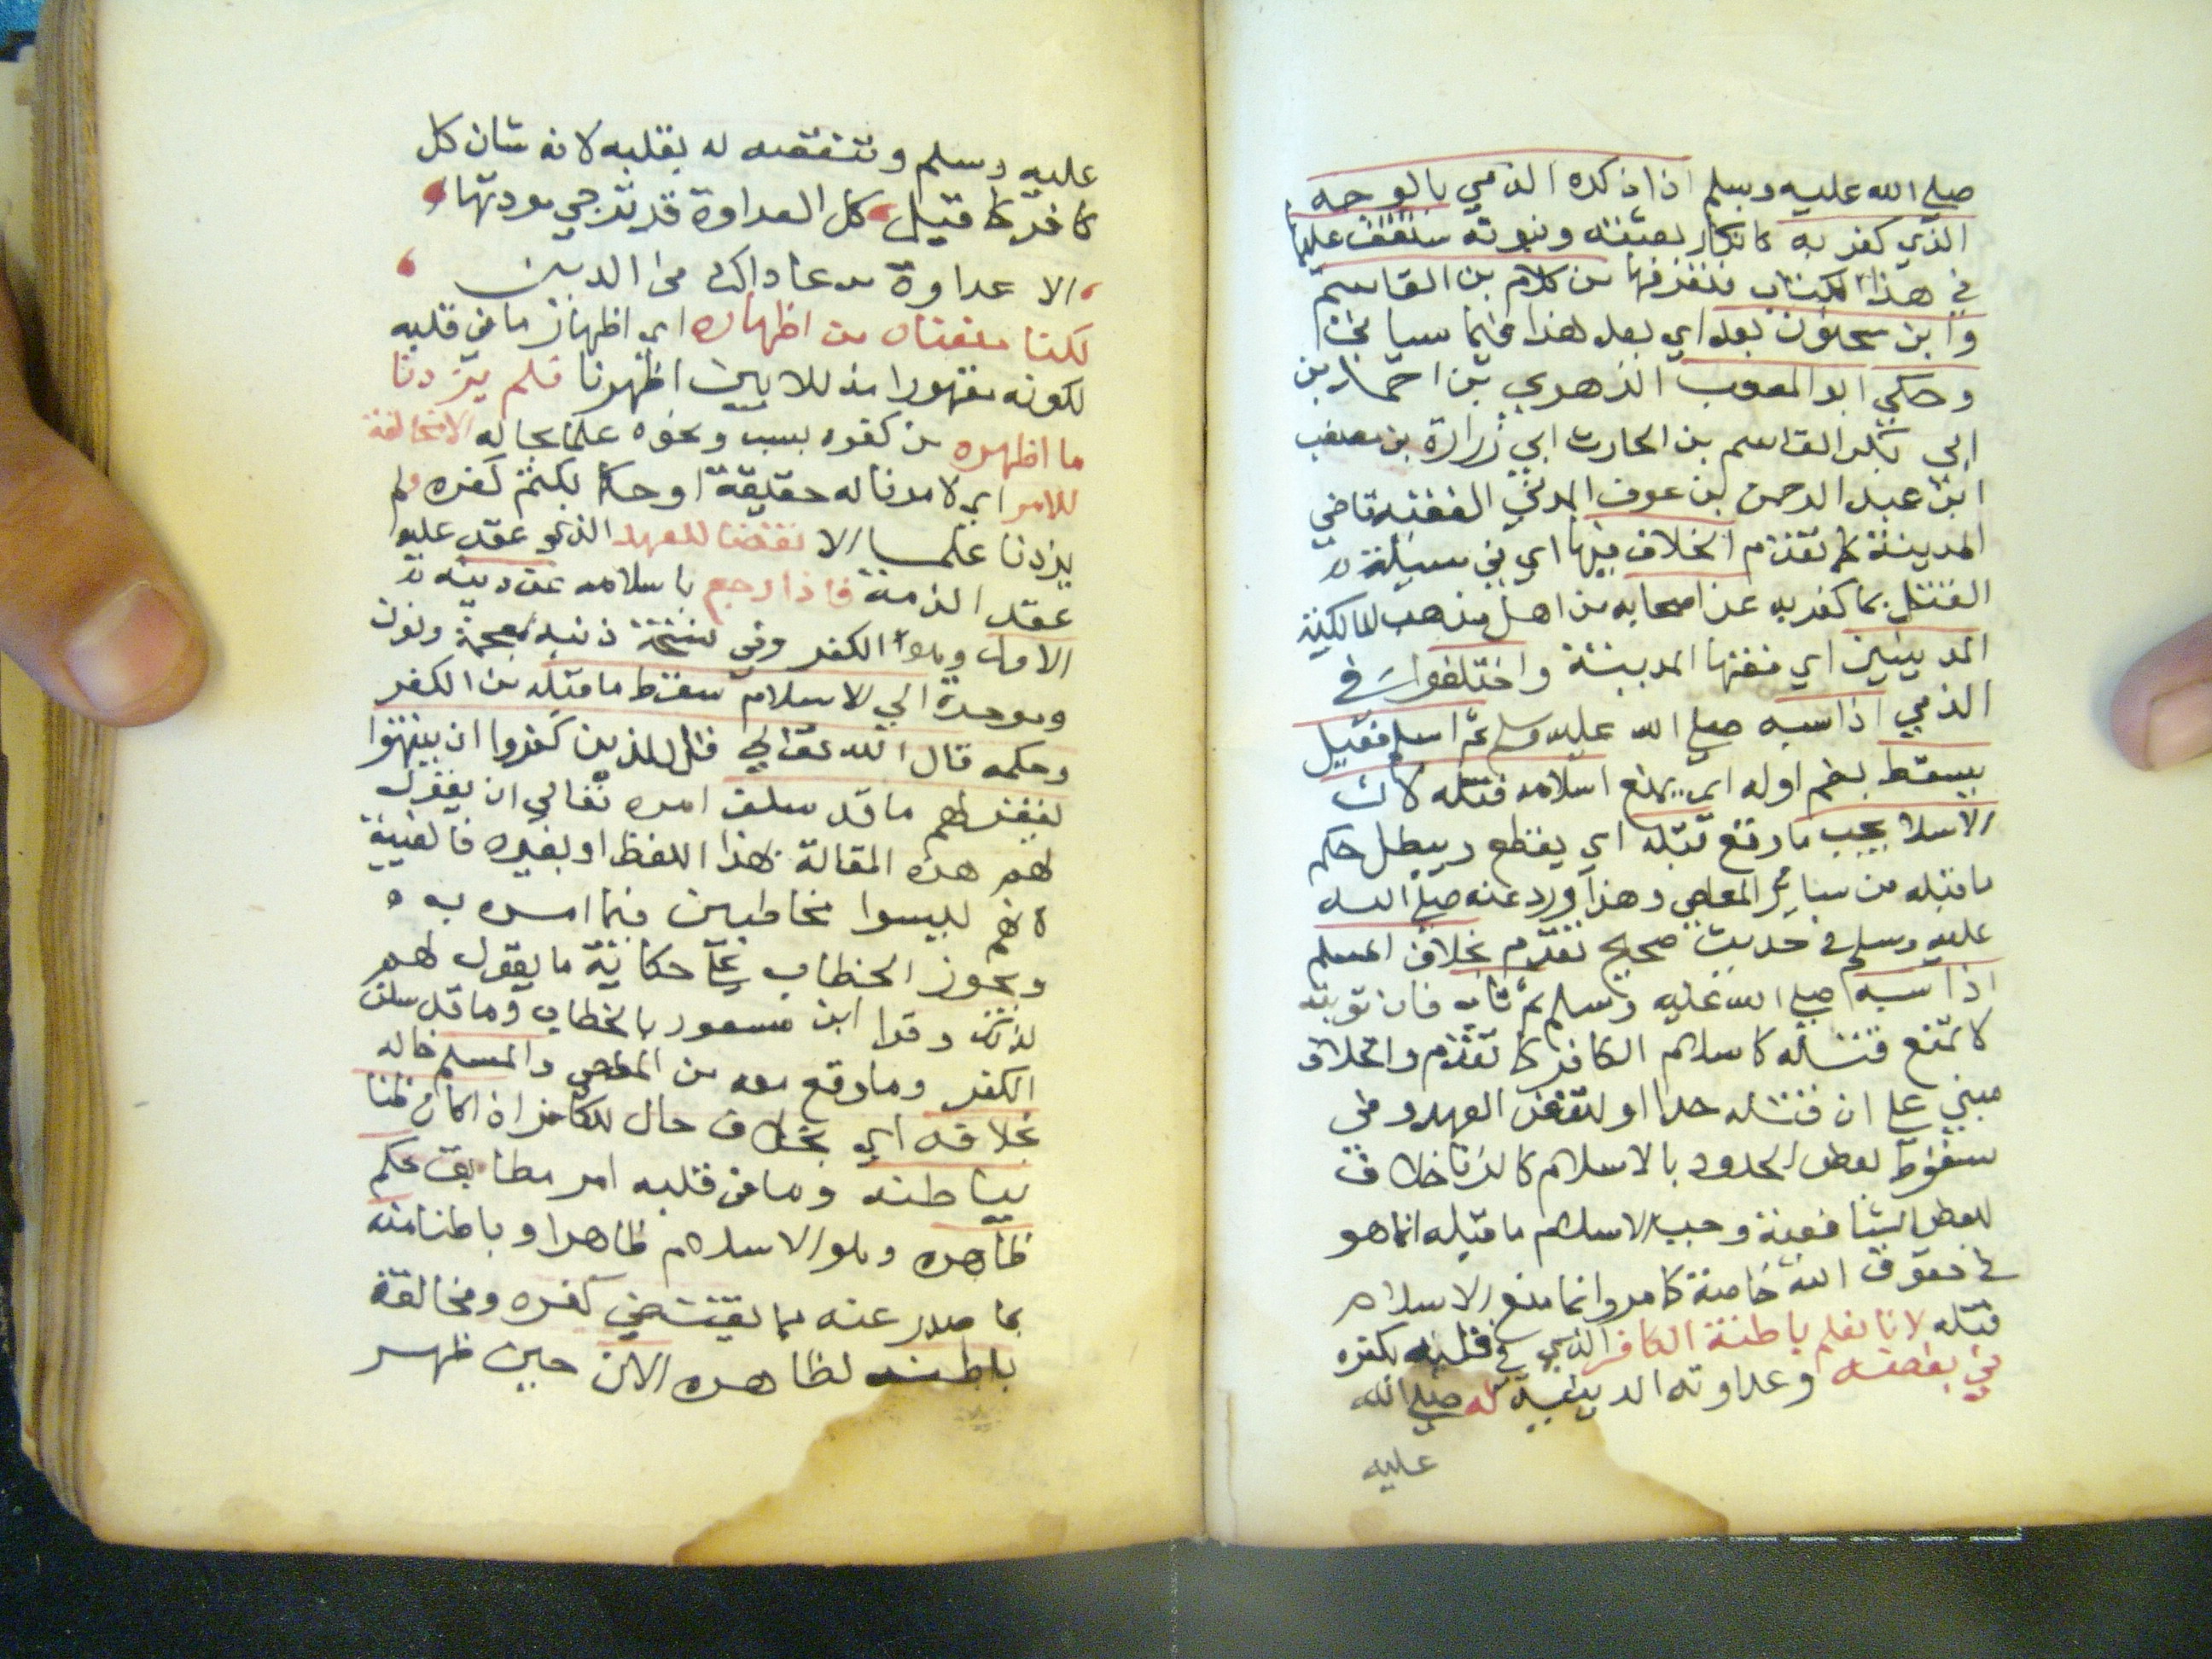 صلى الله عليه وسلم اذا ذكره الذمي بالوجه
الذي كفر به كانكار بعثته ونبوته ستقف عليها
في هذا الكتاب فتعرفها من كلام بن القاسم
وابن سحنون بعد اي بعد هذا فيما سياتي
وحكي ابو المصعب الزهري بن احمد بن
ابي بكر القاسم بن الحارث ابي زرارة بن مصعب
ابن عبد الرحمن بن عوف المدني الفقيه قاضي
المدينة كما تقدم الخلاف فيها اي في مسيلة
القتل بما كفر به عن اصحابه من اهل مذهب المالكية
المدينيين اي فقها المدينة واختلفوا في
الذمي اذا سبه صلى الله عليه وسلم ثم اسلم فقيل
يسقط بضم اوله اي يمنع اسلامه قتله لان
الاسلا يجب ما وقع قبله اي يقطع ويبطل حكم
ما قبله من ساير المعاصي وهذا ورد عنه صلى الله
عليه وسلم في حديث صحيح تقدم بخلاف المسلم
اذا سبه صلى الله عليه وسلم ثم تاب فان توبته
لا تمنع قتله كاسلام الكافر كما تقدم والخلاف
مبني على ان قتله حدا او لنقض العهد وفي
سقوط بعض الحدود بالاسلام كالزنا خلاف
لبعض الشافعية وجب الاسلام ما قبله انما هو
في حقوق الله خاصة كما مر وانما منع الاسلام
قتله لانا نعلم باطنة الكافر الذي في قلبه بكفره
في بغضه وعداوته الدينية له صلى الله
عليه
عليه وسلم وتنقصه له بقلبه لانه شان كل
كافر كما قيل كل العداوة قد ترجي مودتها
الا عداوة من عاداك في الدين
لكنا منعناه من اظهاره اي اظهار ما في قلبه
لكونه مقهورا مذللا بين اظهرنا فلم يزدنا
ما اظهره من كفره بسب ونحوه علما بحاله الا مخالفة
للامر اي لامرنا له حقيقة او حكما بكتم كفره ولم
يزدنا علما الا نقضا للعهد الذي عقد عليه
عقد الذمة فاذا رجع باسلامه عن دينه
الاول وهو الكفر وفي نسخة ذنبه بمعجمة ونون
وموحدة الي الاسلام سقط ما قبله من الكفر
وحكمه قال الله تعالي قل للذين كفروا ان ينتهوا
يغفر لهم ما قد سلف امره تعالي ان يقول
لهم هذه المقالة بهذا اللفظ او بغيره فالغيبة
لانهم ليسوا مخاطبين فيما امره به
ويجوز الخطاب علي حكاية ما يقول لهم
لذلك وقرا ابن مسعود بالخطاب وما قد سلف
الكفر وما وقع معه من المعاصي والمسلم حاله
بخلافه اي بخلاف حال الكافر اذ كان ظننا
بباطنه وما في قلبه امر مطابق حكم
ظاهره وهو الاسلام ظاهرا وباطنا منه
بما صدر عنه مما يقتضي كفره ومخالفة
باطنه لظاهره الان حين ظهر